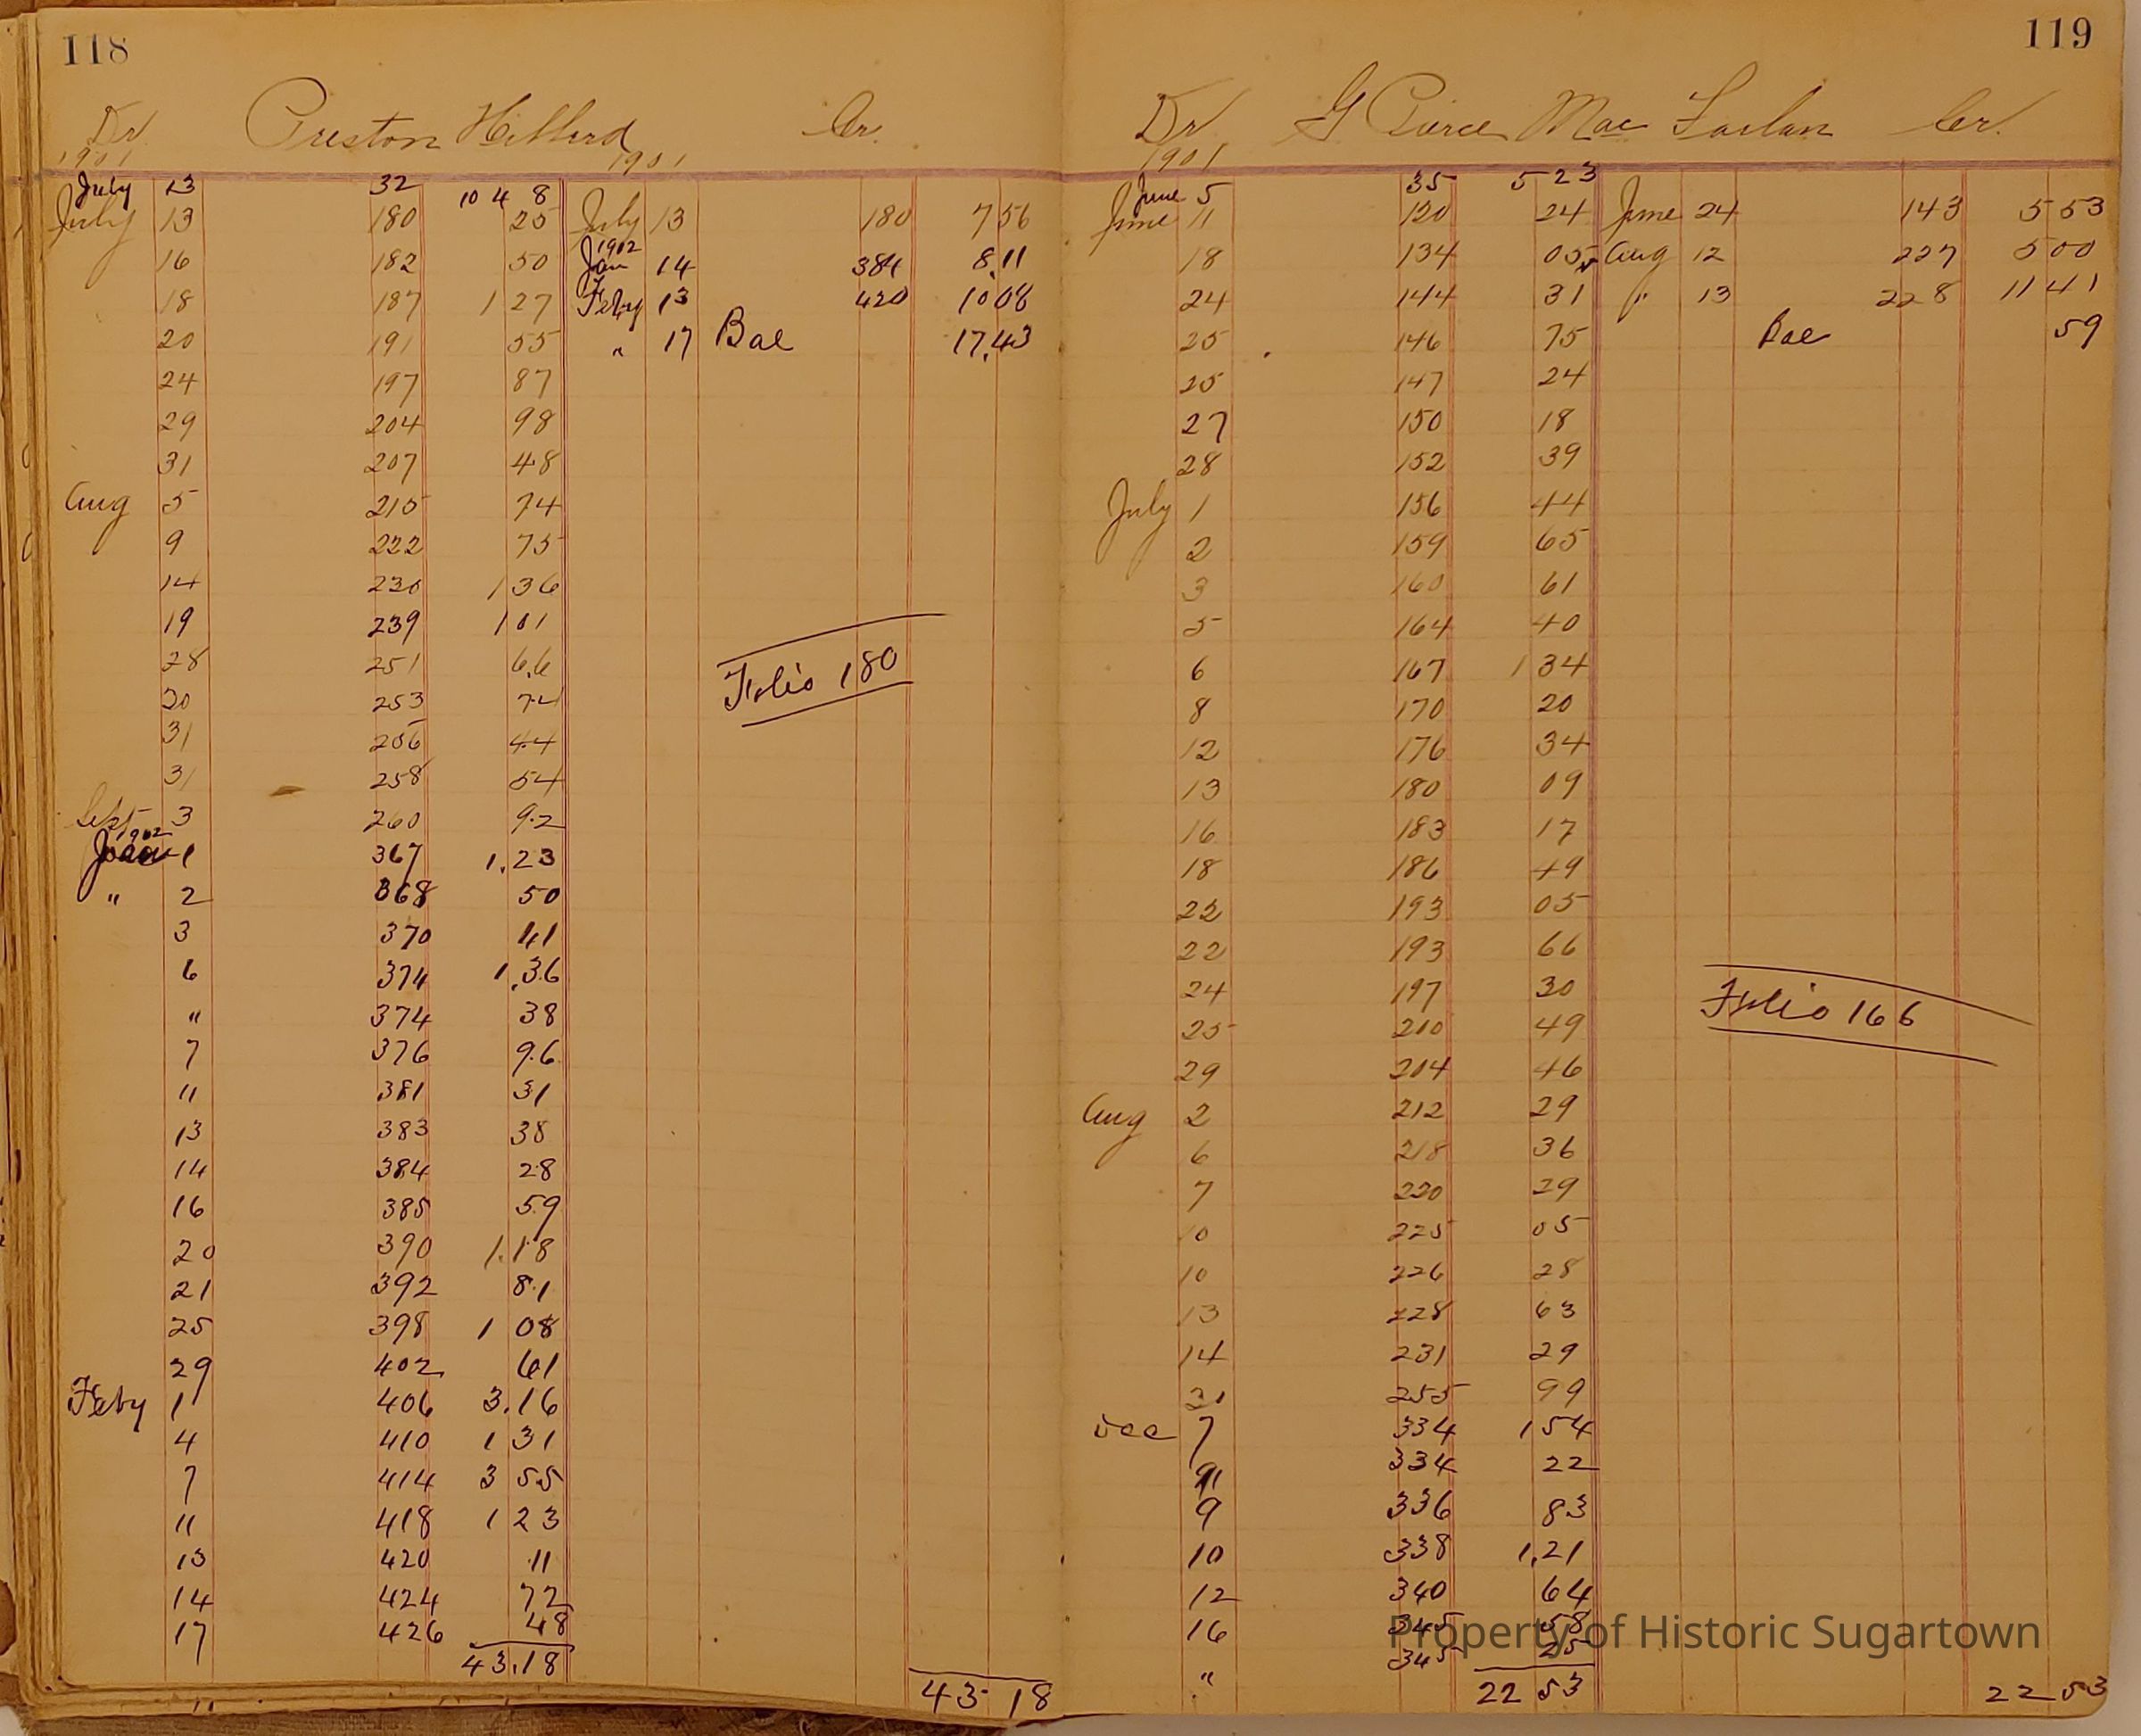 118
Dr Preston Hibberd Cr.
1901 1901
July 13 32 10 48
July 13 180 25 July 13 180 7 56
1902
16 182 50 Jan 14 384 8.11
18 187 1 27 Feby 13 420 10 08
20 191 55 " 17 Bal 17.43
24 197 87
29 204 98
31 207 48
Aug 5 215 74
9 222 75
14 230 1 36
19 239 1 01
28 251 66
30 253 74
31 256 44
31 258 54
Sept 3 260 92
1902
Jan 1 367 1.23
" 2 368 50
3 370 41
6 374 1.36
" 374 38
7 376 96
11 381 31
13 383 38
14 384 28
16 385 59
20 390 1.18
21 392 81
25 398 1 08
29 402 61
Folio 180
Feby 1 406 3.16
4 410 1 31
7 414 3 55
11 418 1 23
13 420 11
14 424 72
17 426 48
43.18 43 18
119
Dr G Pierce Mac Farlan Cr.
1901
June 5 35 5 23
June 11 120 24 June 24 143 5 53
18 134 05 Aug 12 227 5 00
24 144 31 " 13 228 11 41
25 146 75 Bal 59
25 147 24
27 150 18
28 152 39
July 1 156 44
2 159 65
3 160 61
5 164 40
6 167 1 34
8 170 20
12 176 34
13 180 09
16 183 17
18 186 49
22 193 05
22 193 66
24 197 30
25 210 49
29 204 46
Folio 166
Aug 2 212 29
6 218 36
7 220 29
10 225 05
10 226 28
13 228 63
14 231 29
31 255 99
Dec 7 334 1 54
334 22
9 336 83
10 338 1.21
12 340 64
16 345 58
" 345 25
22 53 22 53
Property of Historic Sugartown